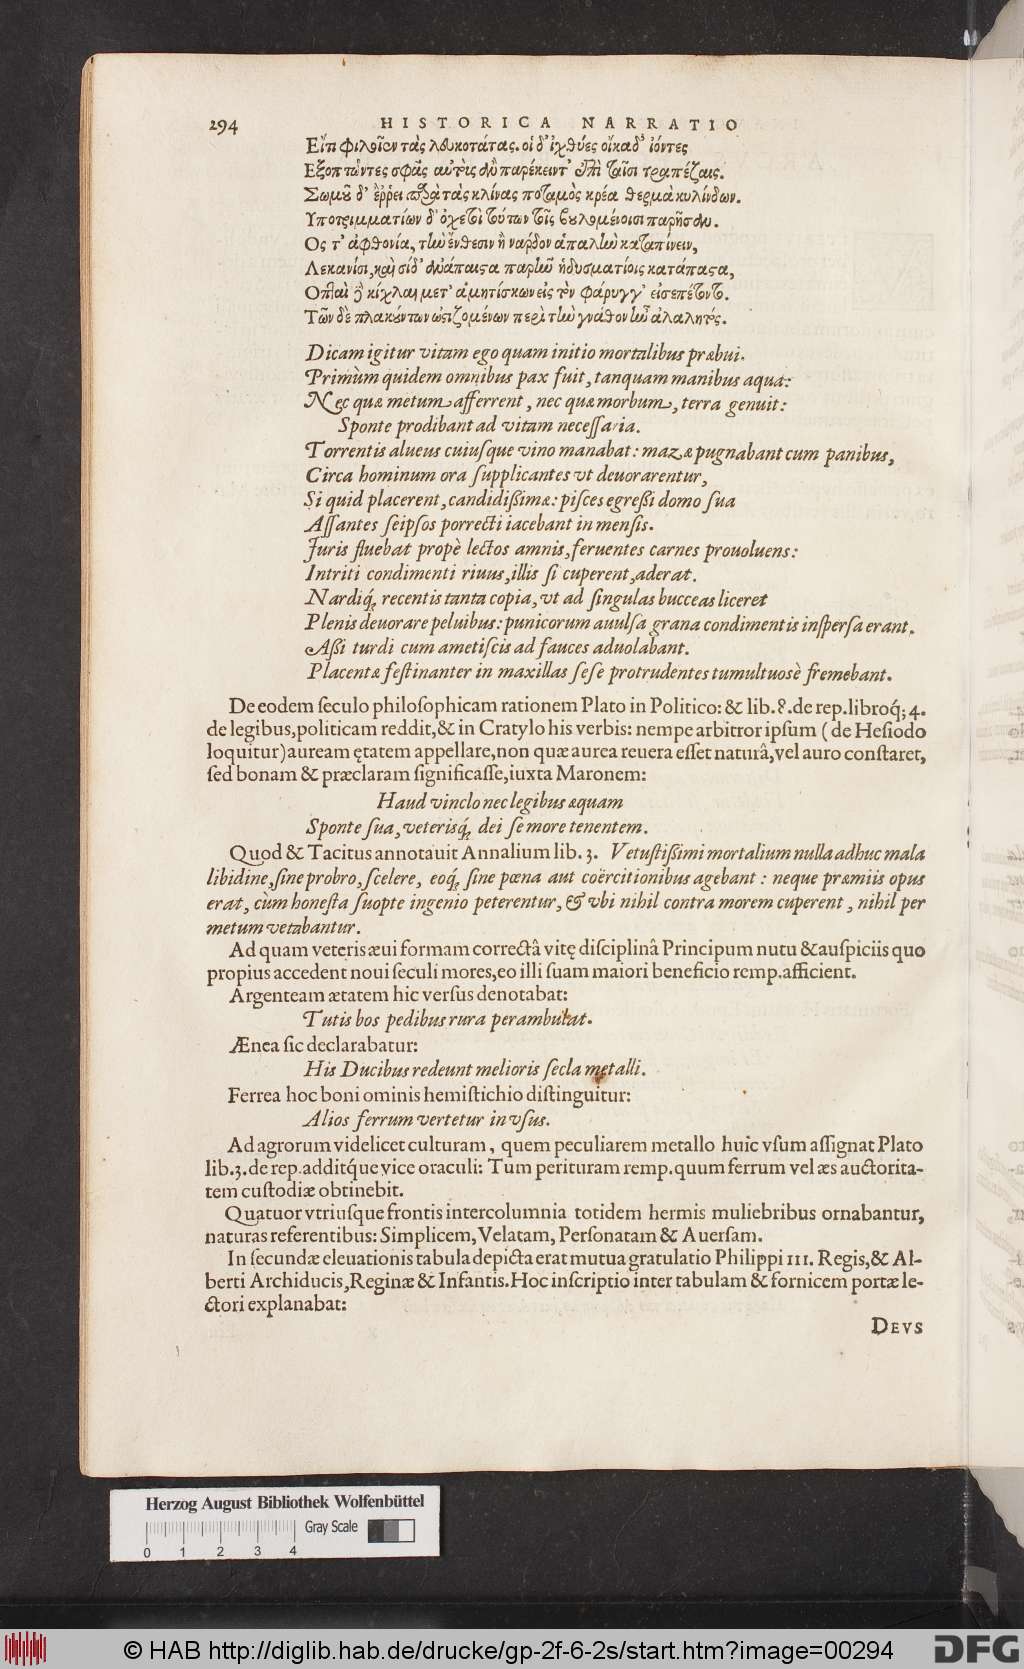 294 HISTORICA NARRATIO
Εἴ τι φιλοῖεν τὰς λευκοτάτας. οἱ δ' ἰχθύες οἴκαδ' ἰόντες
Εξοπτῶντες σφᾶς αὐτὲς ἂν παρέκειντ' ἐπὶ ταῖσι τραπέζαις.
Ζωμοῦ δ' ἔῤῥει παρὰ τὰς κλίνας ποταμὸς κρέα θερμὰ κυλίνδων.
Υποτριμματίων δ' ὀχετοὶ τούτων τοῖς βουλομένοισι παρῆσαν.
Ος τ' ἀφθονία, τὴν ἔνθεσιν ἢ ναρδον ἁπαλὴν καταπίνειν,
Λεκανίσι, καὶ σίδ' ἀνάπαιστα παρῆν ἡδυσματίοις κατάπαστα,
Οπταὶ δὲ κίχλαι μετ' ἀμητίσκων εἰς τὸν φάρυγγ' εἰσεπέτοντο.
Τῶν δὲ πλακούντων ὠστιζομένων περὶ τὴν γνάθον ἦν ἀλαλητός.
Dicam igitur vitam ego quam initio mortalibus præbui.
Primùm quidem omnibus pax fuit, tanquam manibus aqua:
Nec quæ metum afferrent, nec quæ morbum, terra genuit:
Sponte prodibant ad vitam necessaria.
Torrentis alueus cuiusque vino manabat: mazæ pugnabant cum panibus,
Circa hominum ora supplicantes vt deuorarentur,
Si quid placerent, candidißimæ: pisces egreßi domo sua
Assantes seipsos porrecti iacebant in mensis.
Juris fluebat propè lectos amnis, feruentes carnes prouoluens:
Intriti condimenti riuus, illis si cuperent, aderat.
Nardiq; recentis tanta copia, vt ad singulas bucceas liceret
Plenis deuorare peluibus: punicorum auulsa grana condimentis inspersa erant.
Aßi turdi cum ametiscis ad fauces aduolabant.
Placentæ festinanter in maxillas sese protrudentes tumultuosè fremebant.
De eodem seculo philosophicam rationem Plato in Politico: & lib. 8. de rep. libroq; 4.
de legibus, politicam reddit, & in Cratylo his verbis: nempe arbitror ipsum (de Hesiodo
loquitur) auream ętatem appellare, non quæ aurea reuera esset naturâ, vel auro constaret,
sed bonam & præclaram significasse, iuxta Maronem:
Haud vinclo nec legibus æquam
Sponte sua, veterisq; dei se more tenentem.
Quod & Tacitus annotauit Annalium lib. 3. Vetustißimi mortalium nulla adhuc mala
libidine, sine probro, scelere, eoq; sine pœna aut coërcitionibus agebant: neque præmiis opus
erat, cùm honesta suopte ingenio peterentur, & vbi nihil contra morem cuperent, nihil per
metum vetabantur.
Ad quam veteris æui formam correctâ vitę disciplinâ Principum nutu & auspiciis quo
propius accedent noui seculi mores, eo illi suam maiori beneficio remp. afficient.
Argenteam ætatem hic versus denotabat:
Tutis bos pedibus rura perambulat.
Ænea sic declarabatur:
His Ducibus redeunt melioris secla metalli.
Ferrea hoc boni ominis hemistichio distinguitur:
Alios ferrum vertetur in vsus.
Ad agrorum videlicet culturam, quem peculiarem metallo huic vsum assignat Plato
lib. 3. de rep. additq́ue vice oraculi: Tum perituram remp. quum ferrum vel æs auctorita-
tem custodiæ obtinebit.
Quatuor vtriusque frontis intercolumnia totidem hermis muliebribus ornabantur,
naturas referentibus: Simplicem, Velatam, Personatam & Auersam.
In secundæ eleuationis tabula depicta erat mutua gratulatio Philippi III. Regis, & Al-
berti Archiducis, Reginæ & Infantis. Hoc inscriptio inter tabulam & fornicem portæ le-
ctori explanabat:
DEVS
Herzog August Bibliothek Wolfenbüttel
Gray Scale
0 1 2 3 4
© HAB http://diglib.hab.de/drucke/gp-2f-6-2s/start.htm?image=00294
DFG